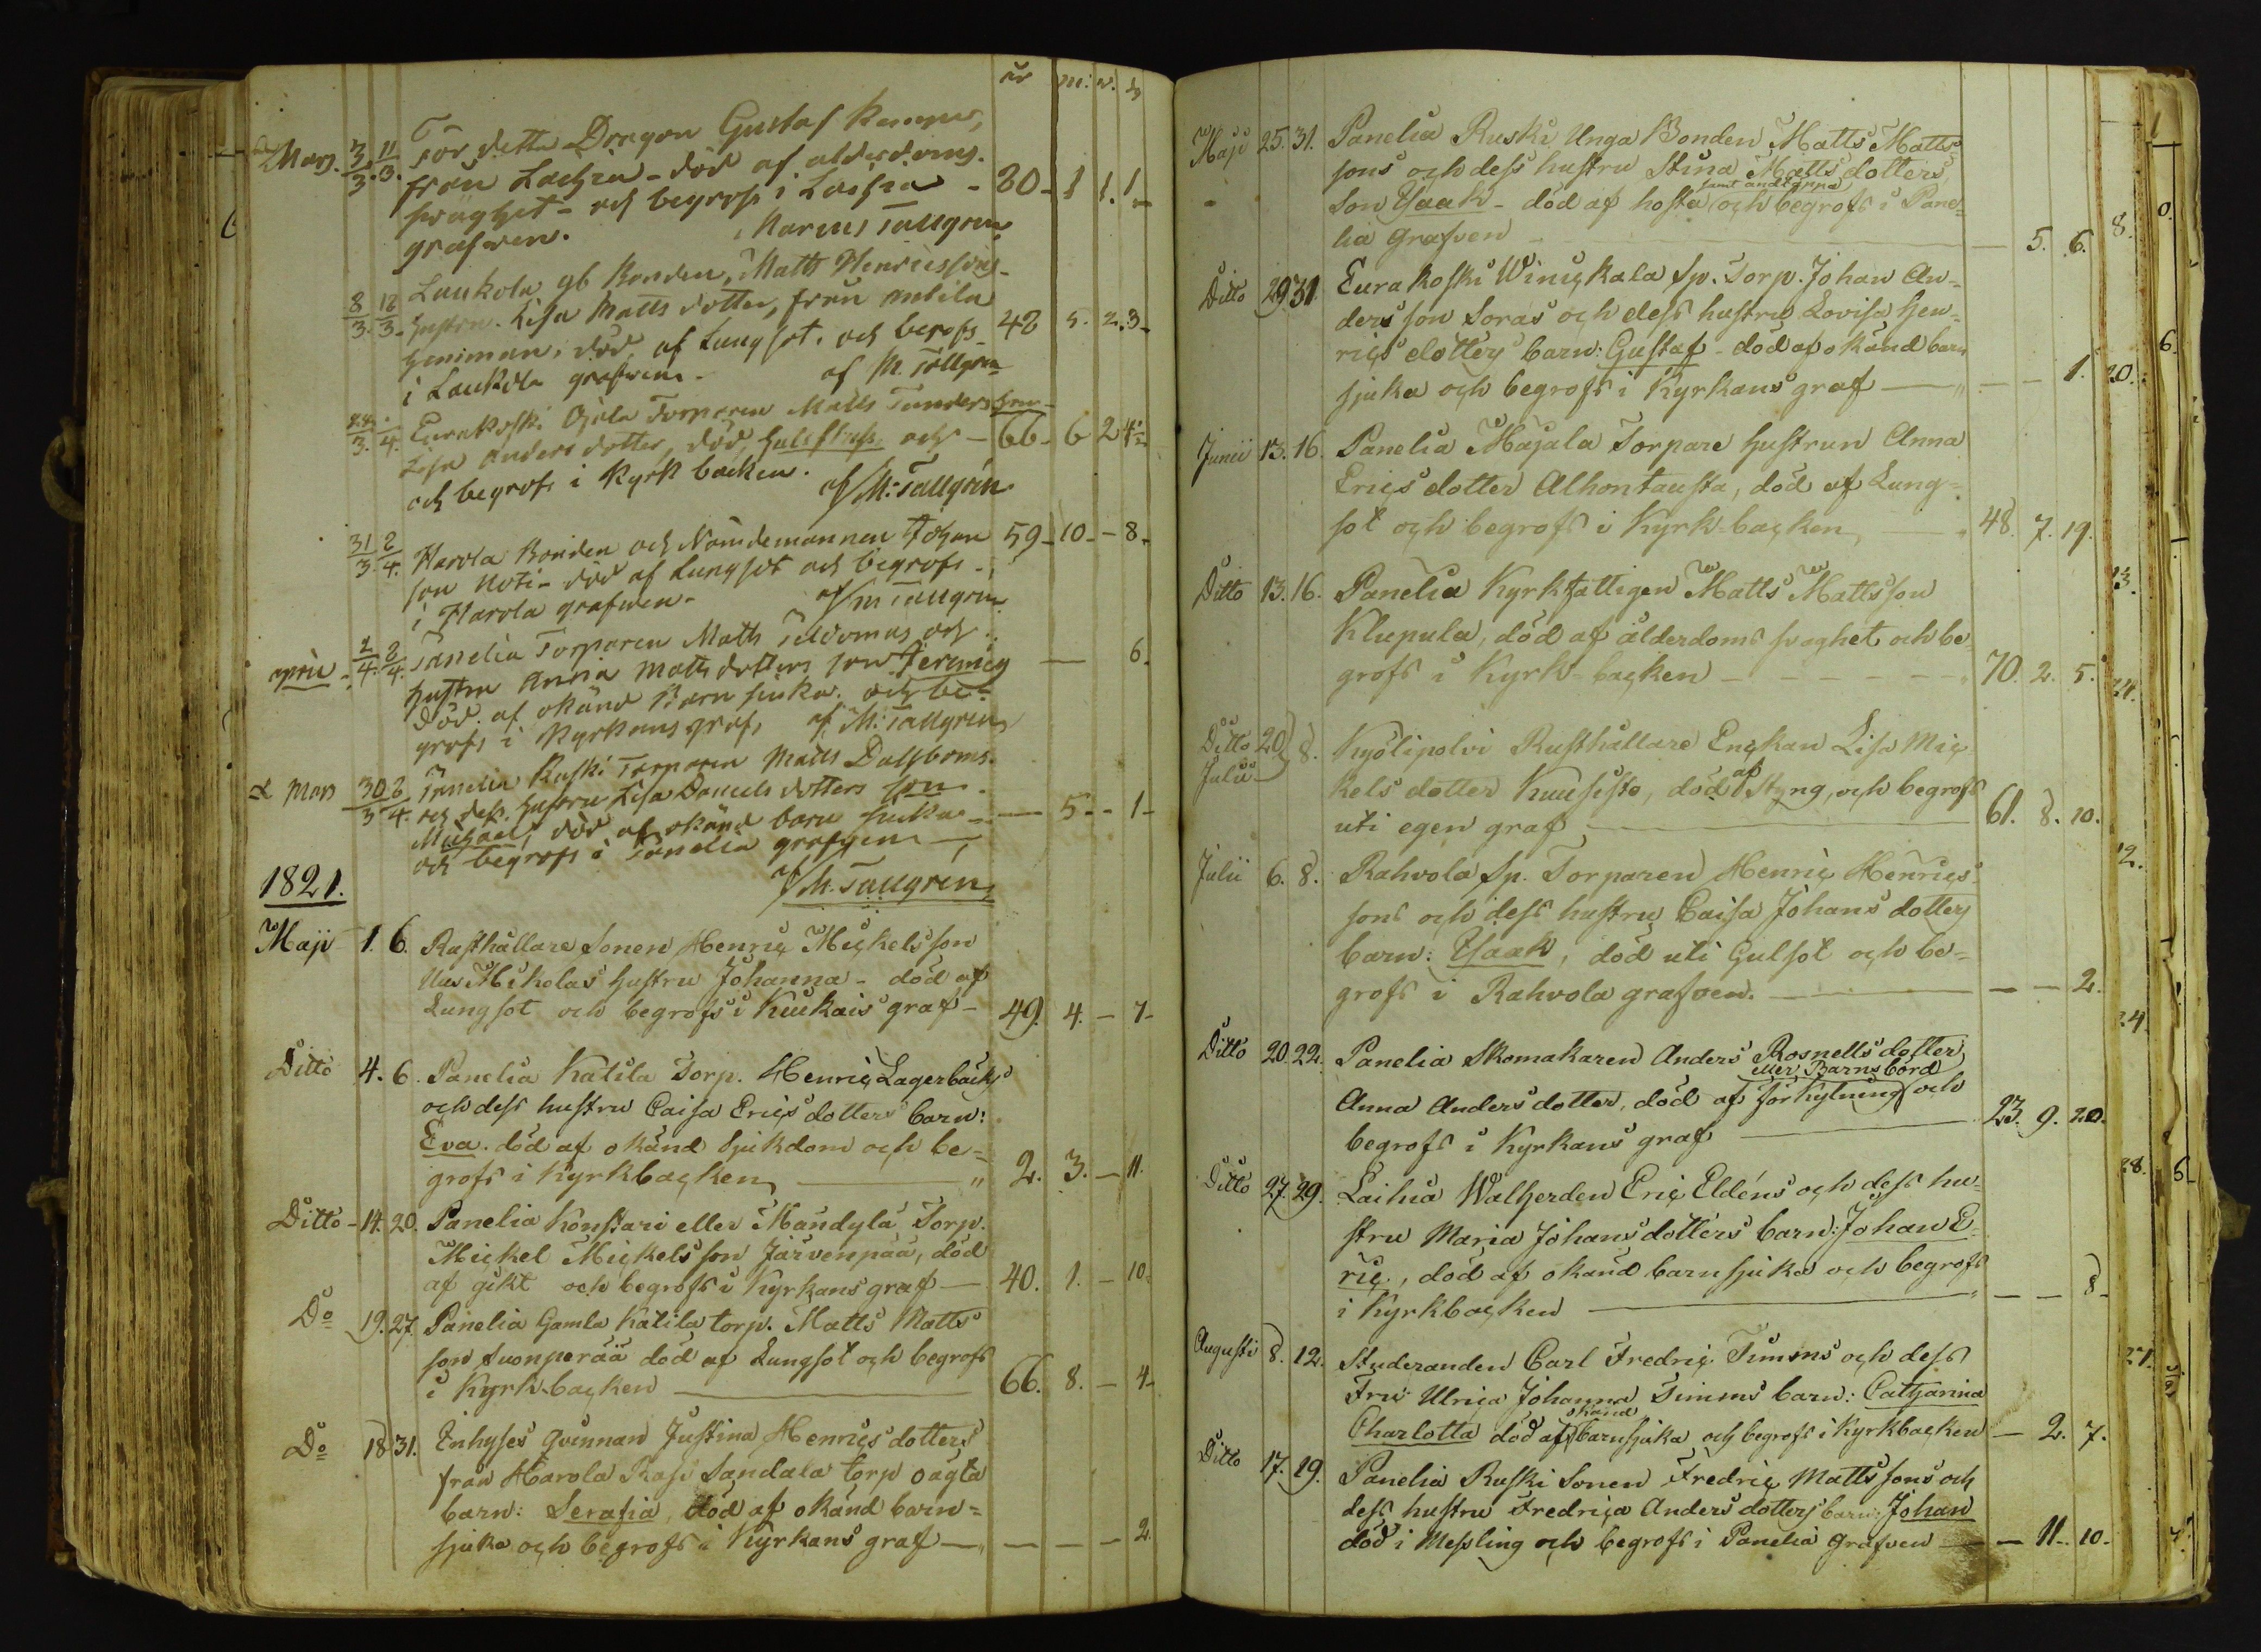 år m: v. d
Mars. 3/3. 11/3. För detta Dragon Gustaf
från Lachia - död af alderdoms.
swaghet - och begrofs i Laihia - 80 - 1 1. 1
grafwen. Marcus Tallgren
Laukola gb Bonden, Matts Henricsson
8/3. 18/3. hustru. Lisa Matts dotter, från Anttila 48 5. 2. 3
hemman, död, af Lungsot. och begrofs
i Laukola grafwen. af M. Tallgren
4. Eurakoski Ojala Torparen Matts
Lisa Anders dotter, död och - 66 - 6 2 4
och begrofs i Kyrk backen.
af M: Tallgren
31/3. 8/4. Harola Bonden och Nämdemannen Johan 59 - 10 - - 8.
son - död af Lungsot och begrofs -
i Harola grafwen - af M Tallgren
april - 2/4. 8/4. Panelia Torparen Matts och
hustru Anna Matts dotters son Jeremias — 6.
död. af okänd Barn siuka. och be-
grofs i Kyrkans graf, af M: Tallgren
Mars 30/3 8/4. Panelia Ruski Torparen Matts Dalsboms.
och dess. hustru Lisa Daniels dotters son -
Michael, död af okänd barn siuka - — 5 - - 1 -
och begrofs i Panelia grafwen —
af M. Tallgren
1821.
Maji 1. 6. Rusthållare Sonen Henric Mickels son
Uus Mikolas hustru Johanna - död af
Lungsot och begrofs i Kiukais graf - 49. 4. - 7 -
Ditto 4. 6. Panelia Katila Torp. Henric Lagerbäcks
och dess hustru Caisa Erics dotters barn:
Eva. död af okänd Sjukdom och be=
grofs i Kyrkbacken — " 2. 3. - 11.
Ditto - 14. 20. Panelia Konstari eller Mandylä Torp.
Mickel Mickels son Järvenpää, död
af gikt och begrofs i Kyrkans graf — 40. 1. - 10.
Do 19. 27. Panelia Gamla Katila torp. Matts Matts
son Suonperää död af Lungsot och begrofs
i Kyrk-backen — 66. 8. - 4 -
Do 18 31. Inhyses qvinnan Justina Henrics dotters
från Harola Rasi Sandala torp oägta
barn: Serafia, död af okänd barn=
sjuka och begrofs i Kyrkans graf — — — - 2.
Maji 25. 31. Panelia Ruski Unga Bonden Matts Matts
sons och dess hustru Stina Matts dotters
samt andtäppa
Son Ysaak - död af hosta och begrofs i Pane=
lia Grafven — — 5. 6.
8.
Ditto 29 31. Eurakoski Winickala Sp. Torp. Johan An=
ders son Soras och dess hustru Lovisa Hen=
rics dotters barn: Gustaf - död af okänd barn
sjuka och begrofs i Kyrkans graf — " — — 1. 20.
Junii 13. 16. Panelia Majala Torpare hustrun Anna
Erics dotter Alhontausta, död af Lung=
sot och begrofs i Kyrk-backen — 48. 7. 19.
13.
Ditto 13. 16. Panelia Kyrkfattigen Matts Matts son
Klupula, död af ålderdoms svaghet och be=
grofs i Kyrk-backen — — — 70. 2. 5. 24.
Ditto 20 8. Kyölipolvi Rusthållare Enckan Lisa Mic
Julii kels dotter Kuusisto, död af Styng, och begrofs
uti egen graf — 61. 8. 10.
12.
Julii 6. 8. Rahvola Sp. Torparen Henric Henrics=
sons och dess hustru Caisa Johans dotters
barn: Ysaak, död uti Gulsot och be=
grofs i Rahvola grafven. — — — 2.
24.
Ditto 20. 22. Panelia Skomakaren Anders Rosnells dotter
eller Barnsbörd
Anna Anders dotter, död af förkylning och
begrofs i Kyrkans graf — 23. 9. 20.
28.
Ditto 27. 29. Laihia Eric Eldéns och dess hu=
stru Maria Johans dotters barn: Johan E=
ric., död af okänd barnsjuka och begrofs
i Kyrkbacken — " — — 8 -
Augusti 8. 12. Studeranden Carl Fredric Timms och dess 21.
Fru: Ulrica Johanna Timms barn: Catharina
okänd
Charlotta död af barnsjuka och begrofs i Kyrkbacken — 2. 7.
Ditto 17. 19. Panelia Ruski Sonen Fredric Matts sons och
dess hustru Fredrica Anders dotters barn: Johan
död i Messling och begrofs i Panelia Grafven — — 11. 10.